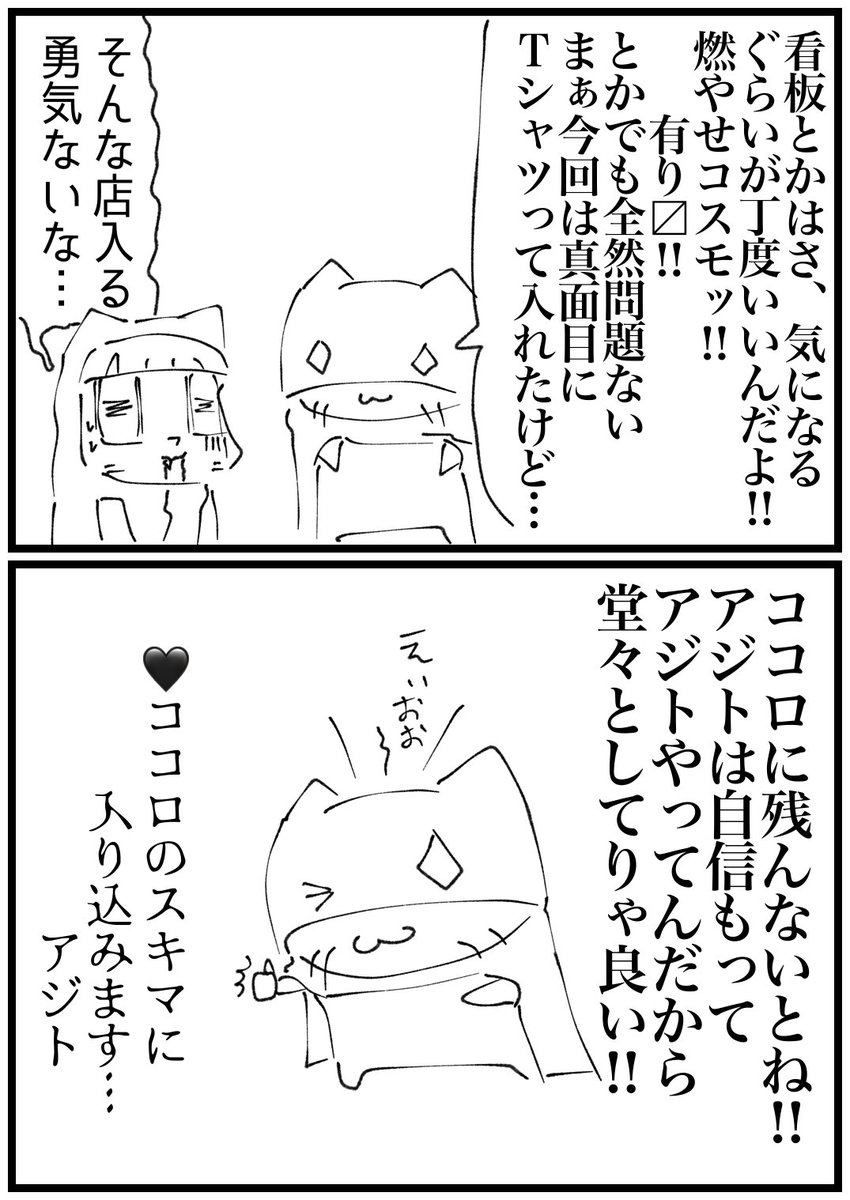 看板とかはさ、気になる
ぐらいが丁度いいんだよ!!
燃やせコスモッ!!
有り〼!!
とかでも全然問題ない
まぁ今回は真面目に
Tシャツって入れたけど…
そんな店入る
勇気ないな…
ココロに残んないとね!!
アジトは自信もって
アジトやってんだから
堂々としてりゃ良い!!
えいおお
♥ココロのスキマに
入り込みます…
アジト